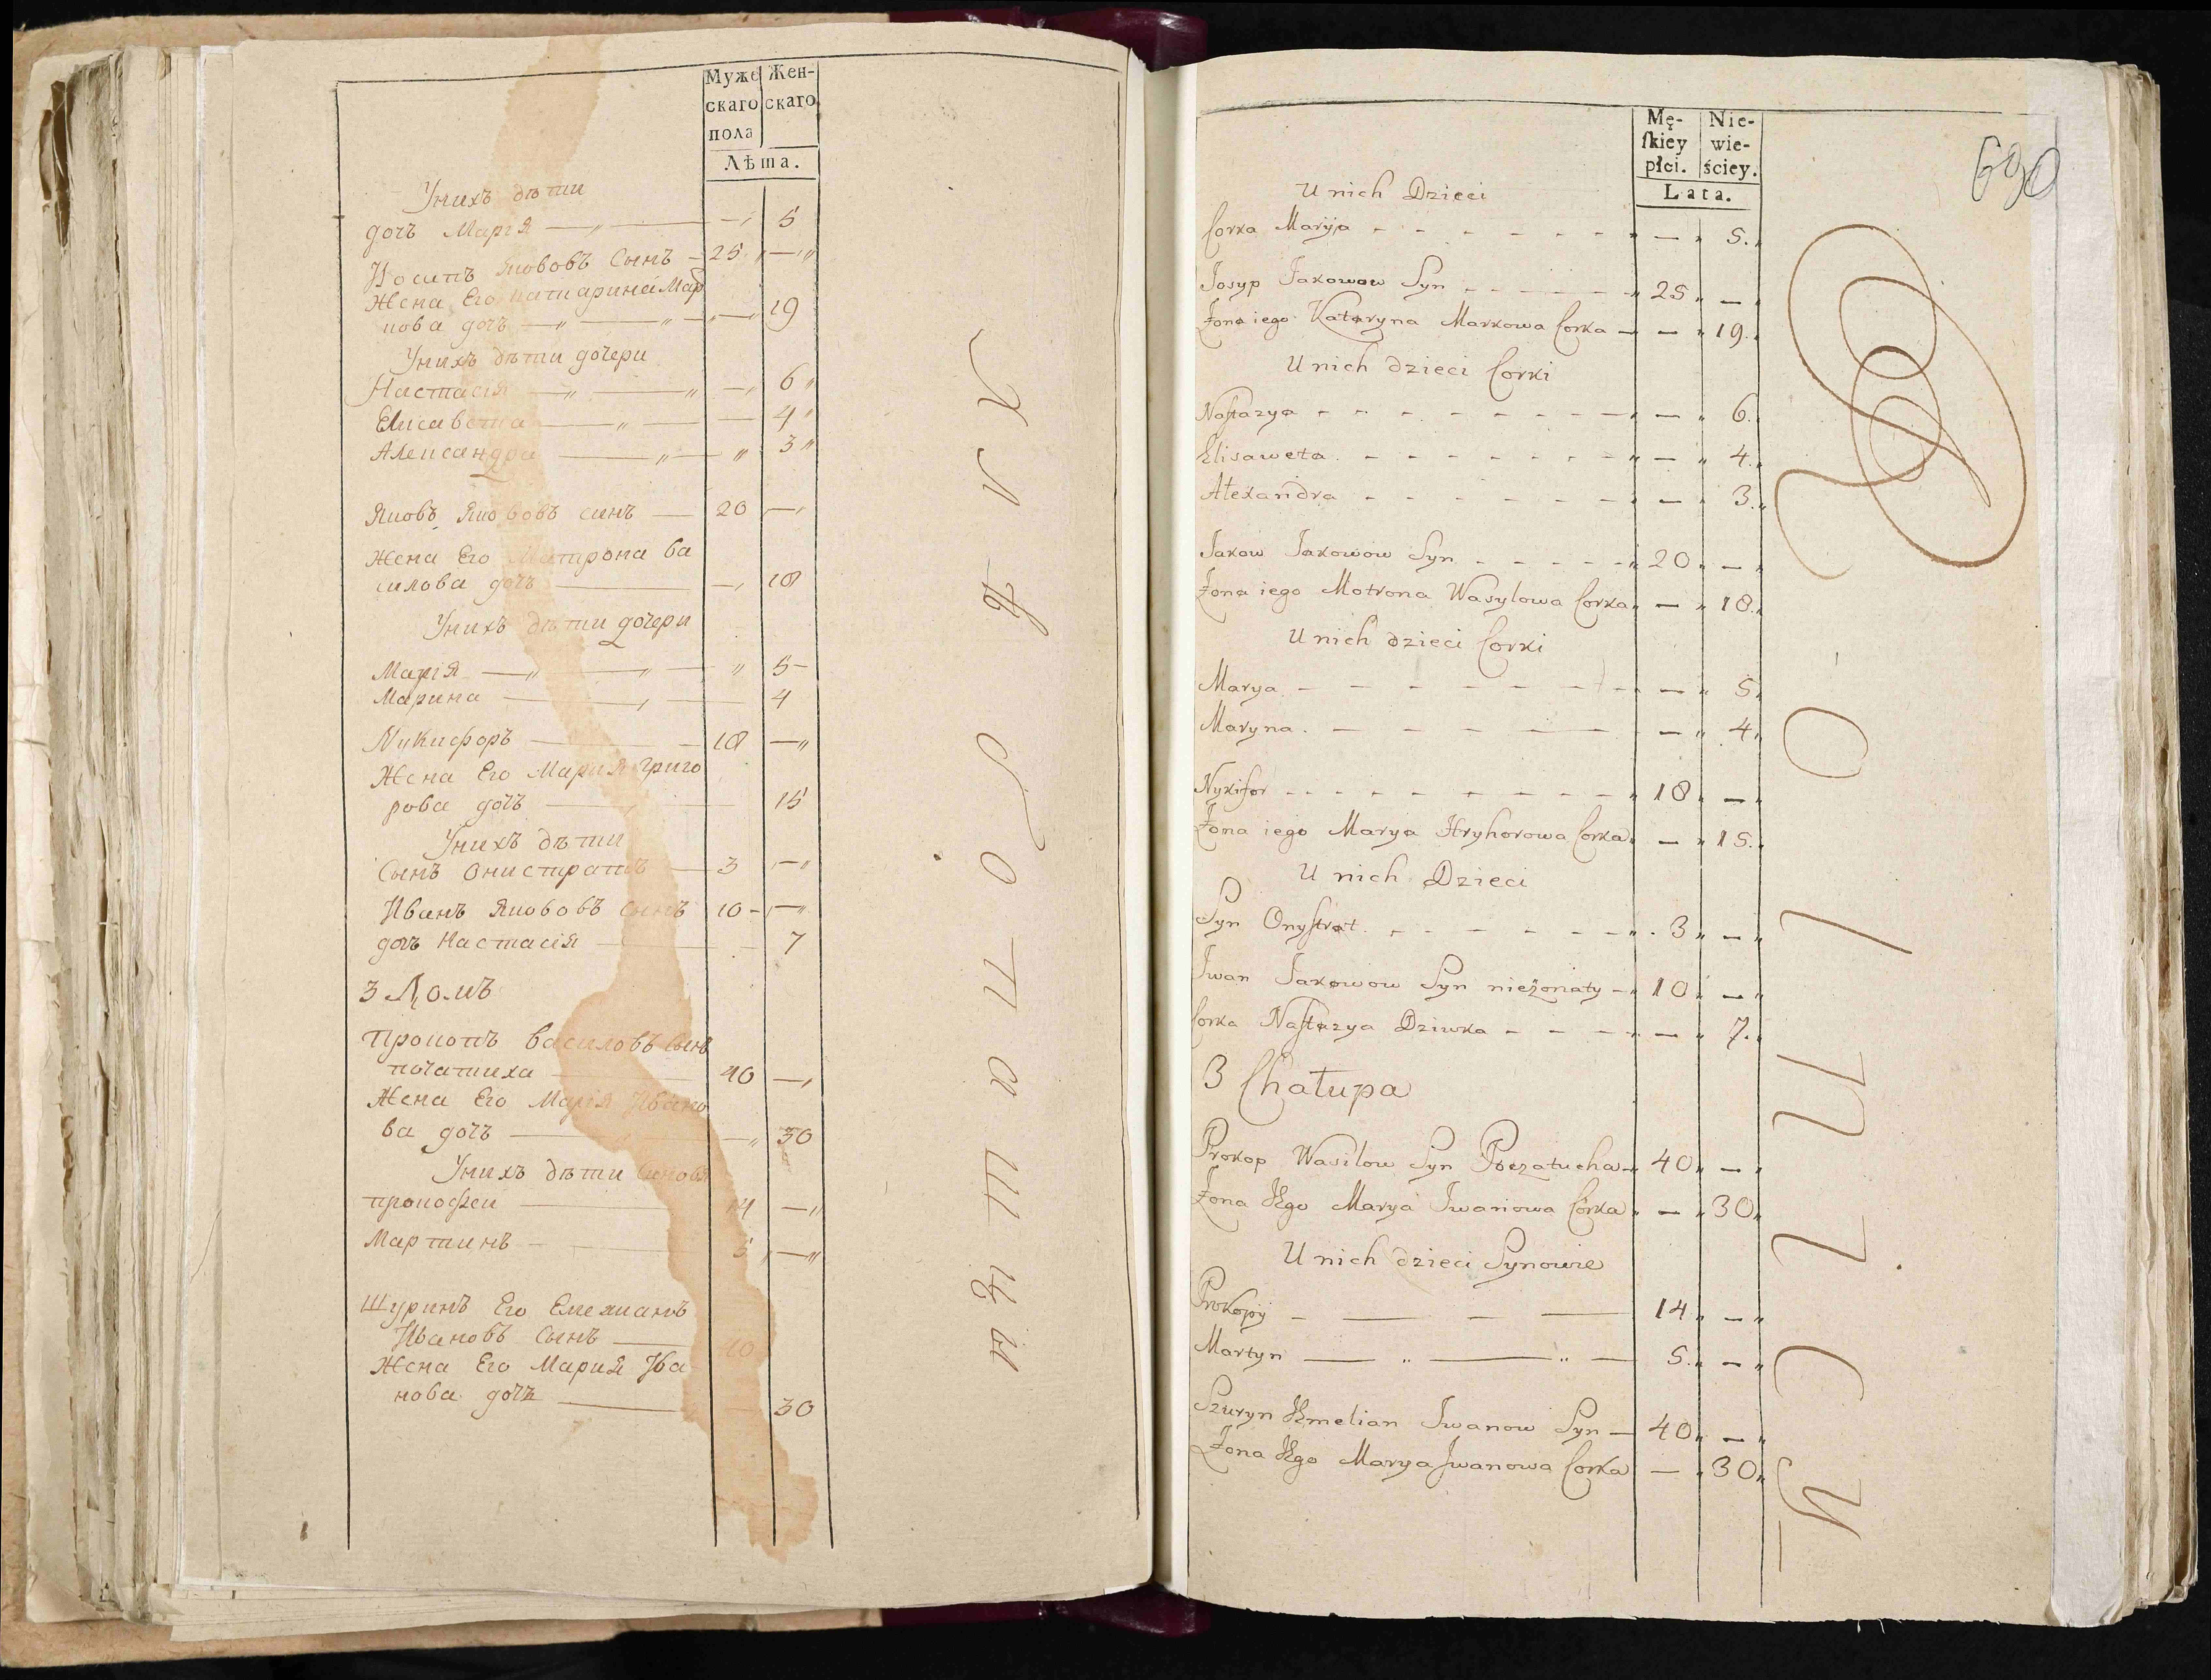 Муже Жен-
скаго скаго
пола
Лѣта.
Унихъ дѣти
дочъ Марія — — 5
Иосипъ Якововъ Сынъ — 25 —
Жена Его Катарина Мар
кова дочъ — — 19
Унихъ дѣти дочери
Настасія — — 6
Елисавета — — 4
Александра — — 3
Яковъ Якововъ синъ — 20 —
Жена Его Матрона Ва
силова дочъ — — 18
Унихъ дѣти дочери
Марія — — 5
Марина — — 4
Никифоръ — 18 —
Жена Его Мария Григо
рова дочъ — 15
Унихъ дѣти
Сынъ Онистратъ — 3 —
Иванъ Якововъ сынъ 10 —
дочъ Настасія — — 7
3 Домъ
Прокопъ Василовъ Сынъ
початуха — 40 —
Жена Его Марія Ивано
ва дочъ — — 30
Унихъ дѣти Синовя
прокофеи — 14 —
Мартинъ — 5 —
Шуринъ Его Емелианъ
Ивановъ Сынъ — 40
Жена Его Мария Ива
нова дочъ — 30
Mę- Nie-
ſkiey wie-
płci. ściey.
Lata.
690
U nich Dzieci
Corka Maryja — — 5.
Josyp Jakowow Syn — 25 —
Żona iego Kataryna Markowa Corka — — 19.
U nich dzieci Corki
Naſtazya — — 6.
Elisaweta — — 4.
Alexandra — — 3.
Jakow Jakowow Syn — 20 —
Żona iego Motrona Wasylowa Corka — 18.
U nich dzieci Corki
Marya — — 5
Maryna — — 4
Nykifor — 18 —
Żona iego Marya Hryhorowa Corka — 15.
U nich Dzieci
Syn Onyſtrat — 3 —
Jwan Jakowow Syn nieżonaty — 10 —
Corka Naſtazya Dziwka — — 7.
3 Chałupa
Prokop Wasilow Syn Poczatucha — 40 —
Żona Ego Marya Jwanowa Corka — 30
U nich dzieci Synowie
Prokopy — 14 —
Martyn — 5. —
Szuryn Emelian Jwanow Syn — 40 —
Żona Ego Marya Jwanowa Corka — 30